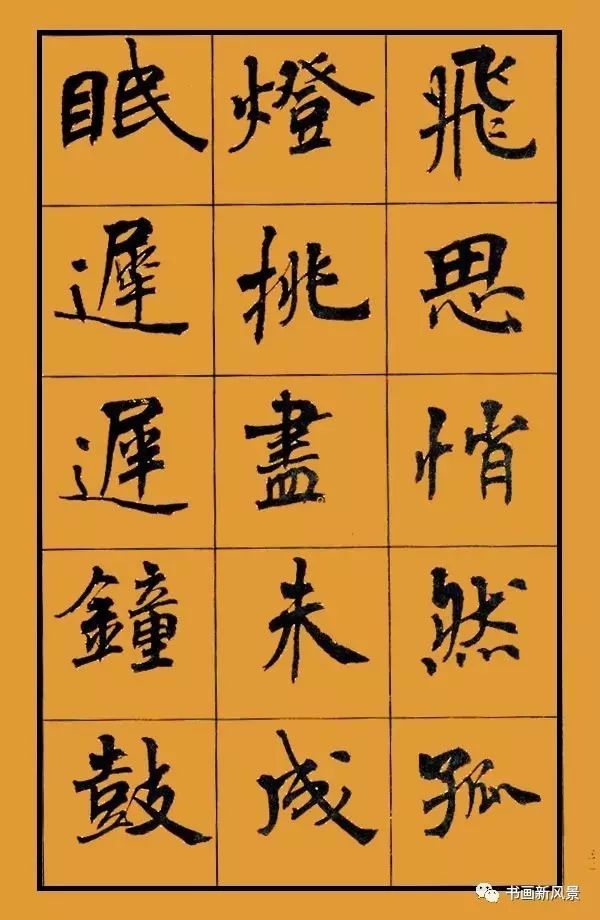 飛思悄然孤
燈挑盡未成
眠遲遲鐘鼓
三一
书画新风景